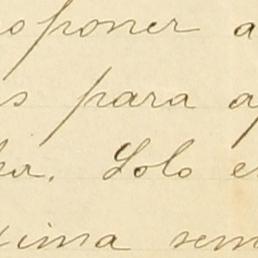 oponer a
s para a
. Solo e
ima sem